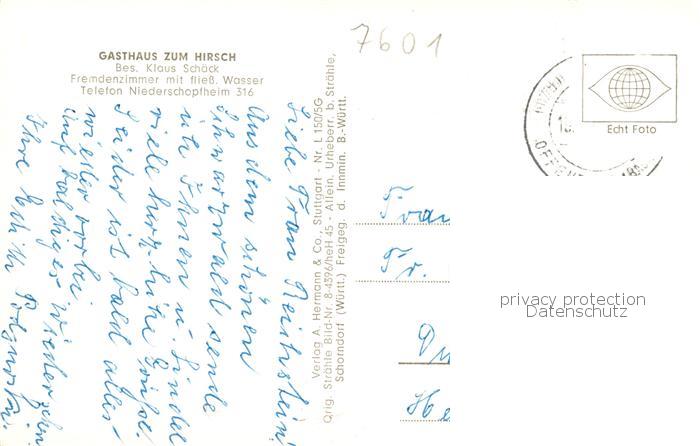 7601
GASTHAUS ZUM HIRSCH
Bes. Klaus Schäck
Fremdenzimmer mit fließ. Wasser
Telefon Niederschopfheim 316
Liebe Frau
Aus dem schönen
Schwarzwald sende
ich Ihnen u.
viele herzliche Grüße.
Leider ist bald alles
wieder vorbei
auf baldiges Wiedersehn
Ihre
Verlag A. Hermann & Co., Stuttgart - Nr. L 150/5G
Orig. Strähle Bild-Nr. 8-4396/heH 45 - Allein. Urheberr. b. Strähle,
Schorndorf (Württ.) Freigeg. d. Innmin. B.-Württ.
Echt Foto
Frau
Fr.
Du
He
privacy protection
Datenschutz